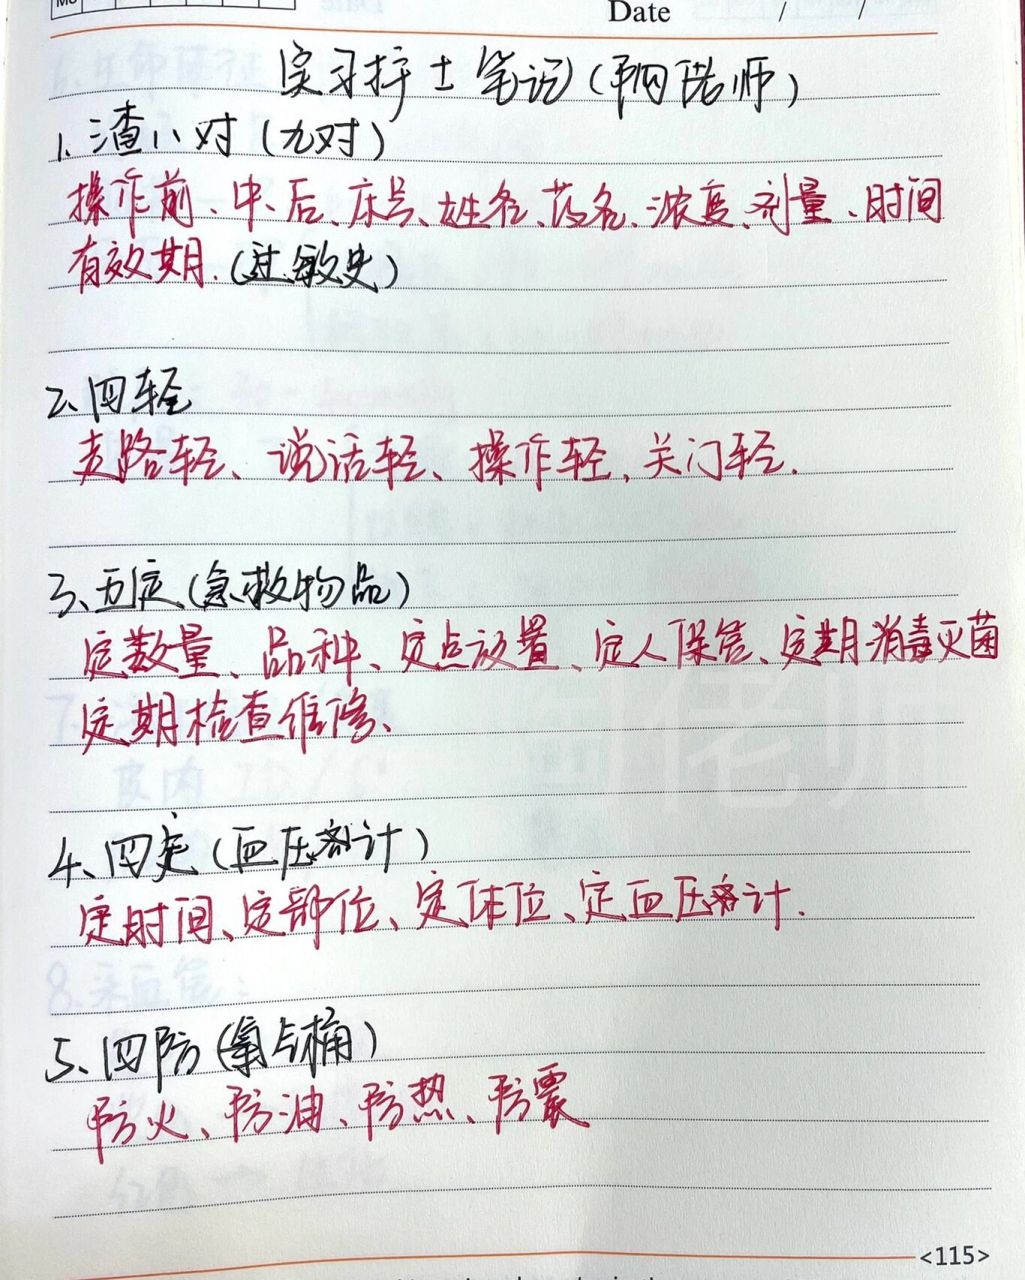 Date / /
实习护士笔记(阿佬师)
1、三查八对(九对)
操作前、中、后、床号、姓名、药名、浓度、剂量、时间
有效期.(过敏史)
2、四轻
走路轻、说话轻、操作轻、关门轻.
3、五定(急救物品)
定数量、品种、定点放置、定人保管、定期消毒灭菌
定期检查维修、
4、四定(血压計)
定时间、定部位、定体位、定血压計.
5、四防(氧气桶)
防火、防油、防热、防震
<115>